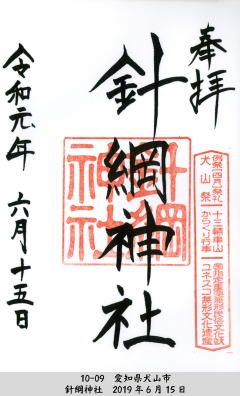 奉拝
例祭(四月)祭礼
犬山祭
十三輌車山
からくり行事
国指定重要無形民俗文化財
ユネスコ無形文化遺産
針綱神社
針綱
神社
令和元年 六月十五日
10-09 愛知県犬山市
針綱神社 2019年6月15日